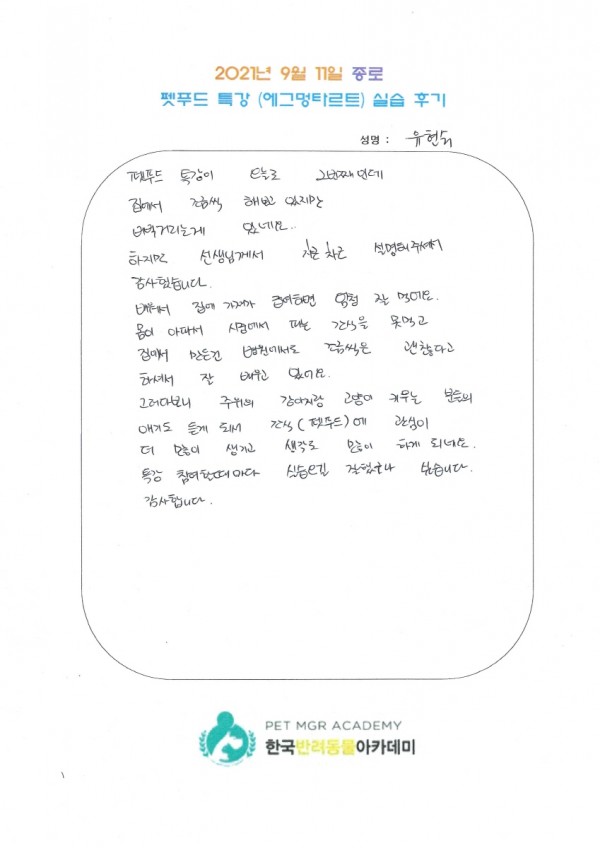 2021년 9월 11일 종로
펫푸드 특강 (에그멍타르트) 실습 후기
성명 : 유현숙
펫푸드 특강이 오늘로 2번째인데
집에서 조금씩 해보고 있지만
버벅거리는게 있네요..
하지만 선생님께서 차근 차근 설명해주셔서
감사했습니다.
배워서 집에 가져가 급여하면 엄청 잘 먹어요.
몸이 아파서 시중에서 파는 간식을 못먹고
집에서 만든건 병원에서도 조금씩은 괜찮다고
하셔서 잘 배우고 있어요.
그러다보니 주위의 강아지랑 고양이 키우는 분들의
얘기도 듣게 되서 간식(펫푸드)에 관심이
더 많이 생기고 생각도 많이 하게 되네요.
특강 참여할때마다 실습오길 잘했구나 싶습니다.
감사합니다.
PET MGR ACADEMY
한국반려동물아카데미